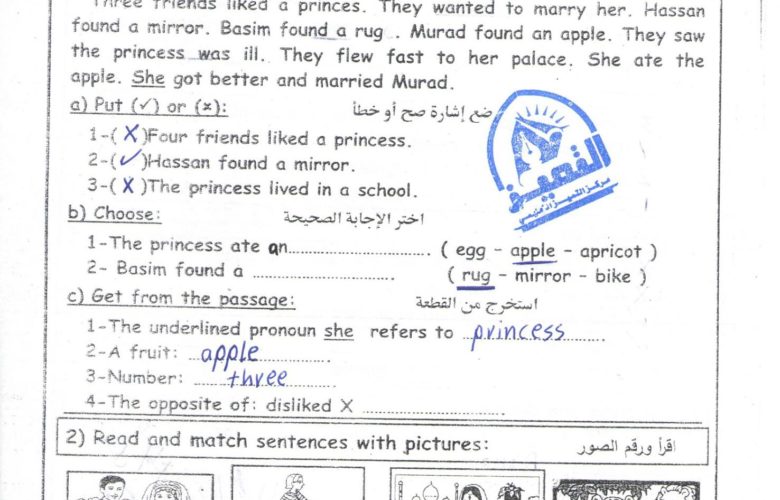 Three friends liked a princes. They wanted to marry her. Hassan
found a mirror. Basim found a rug . Murad found an apple. They saw
the princess was ill. They flew fast to her palace. She ate the
apple. She got better and married Murad.
a) Put (✓) or (×): ضع إشارة صح أو خطأ
1-( X )Four friends liked a princess.
2-( ✓ )Hassan found a mirror.
3-( X )The princess lived in a school.
b) Choose: اختر الإجابة الصحيحة
1-The princess ate an.............................. ( egg - apple - apricot )
2- Basim found a .............................. ( rug - mirror - bike )
c) Get from the passage: استخرج من القطعة
1-The underlined pronoun she refers to ..princess..........
2-A fruit: ..apple..............
3-Number: ........three...........
4-The opposite of: disliked X ..............................
2) Read and match sentences with pictures: اقرأ ورقم الصور